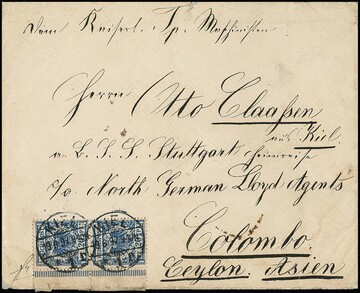 Dem Kaiserl. Tp. Maschinisten
Herrn Otto Claaßen
aus Kiel
a. B. S. S. Stuttgart Heimreise
T/o North German Lloyd Agents
Colombo
Ceylon. Asien
KIEL KIEL